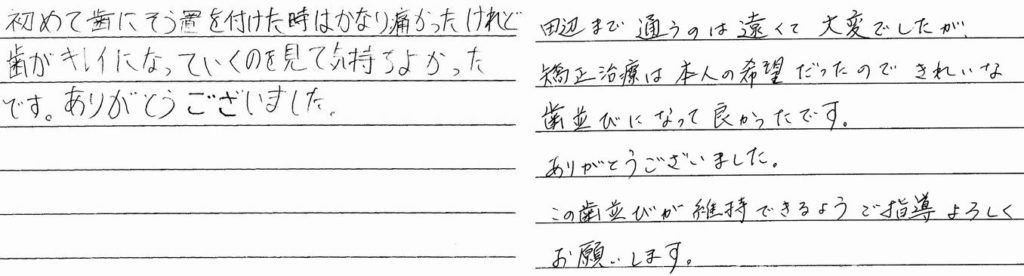 初めて歯にそう置を付けた時はかなり痛かったけれど
歯がキレイになっていくのを見て気持ちよかった
です。ありがとうございました。
田辺まで通うのは遠くて大変でしたが、
矯正治療は本人の希望だったのできれいな
歯並びになって良かったです。
ありがとうございました。
この歯並びが維持できるようご指導よろしく
お願いします。